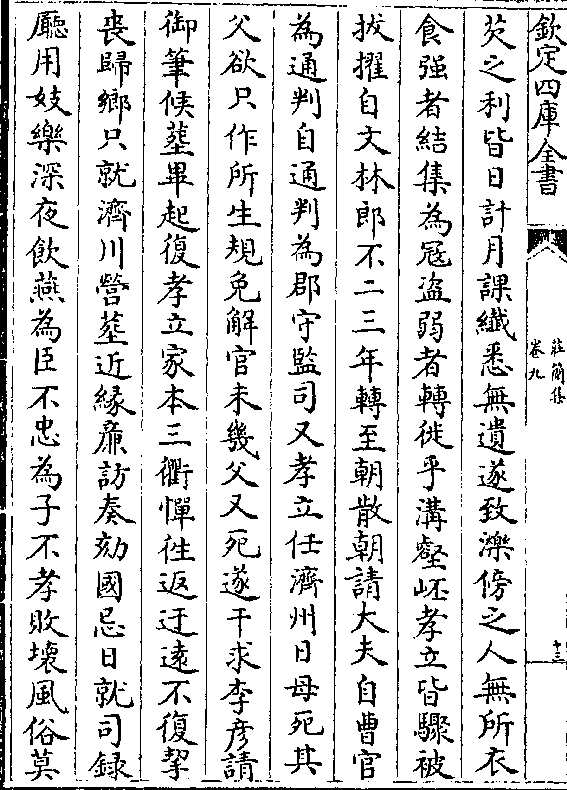 欽定四庫全書
莊簡集
卷九
十三
芡之利皆日計月課纎悉無遺遂致濼傍之人無所衣
食强者結集為冦盜弱者轉徙乎溝壑㔻孝立皆驟被
拔擢自文林郎不二三年轉至朝散朝請大夫自曹官
為通判自通判為郡守監司又孝立任濟州日母死其
父欲只作所生規免解官未幾父又死遂干求李彦請
御筆候葬畢起復孝立家本三衢憚徃返迂逺不復挈
喪歸鄉只就濟川營葬近緣亷訪奏劾國忌日就司録
廳用妓樂深夜飲燕為臣不忠為子不孝敗壞風俗莫